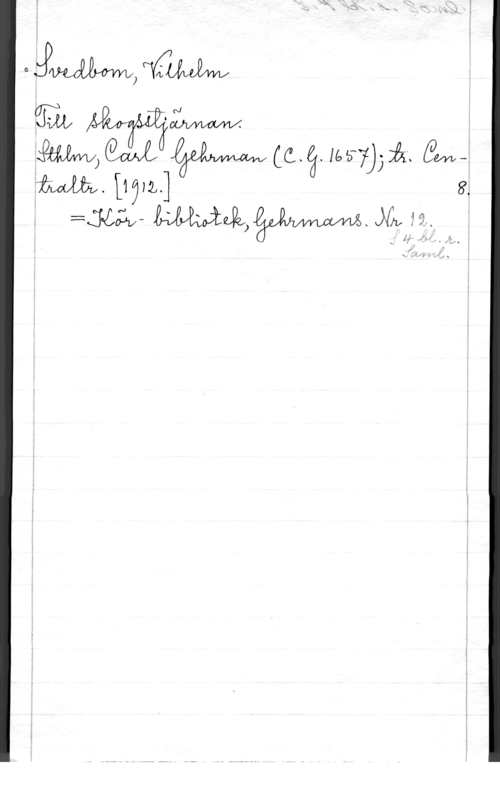 Svedbom, Vilhelm
Till skogsstjärnan.
Sthlm, Carl Gehrman (C. G. 1657); tr. Cen-
traltr. [1912.] 8.
=Kör-bibliotek, Gehrmans. Nr 12.
f 4 bl. r.
Saml.